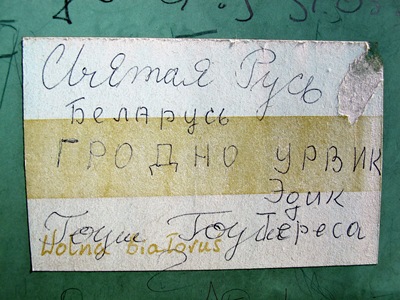 Святая Русь
Беларусь
ГРОДНО УРВИК
Эдик
Тереса
Wolna Białoruś